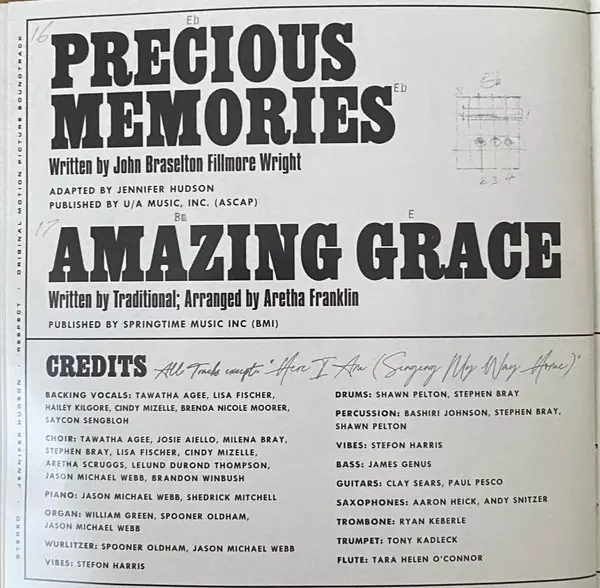 16
Eb
PRECIOUS
MEMORIES
Eb
Written by John Braselton Fillmore Wright
ADAPTED BY JENNIFER HUDSON
PUBLISHED BY U/A MUSIC, INC. (ASCAP)
Eb
2 3 4
17
Bm
E
AMAZING GRACE
Written by Traditional; Arranged by Aretha Franklin
PUBLISHED BY SPRINGTIME MUSIC INC (BMI)
CREDITS All Tracks except: "Here I Am (Singing My Way Home)"
BACKING VOCALS: TAWATHA AGEE, LISA FISCHER,
HAILEY KILGORE, CINDY MIZELLE, BRENDA NICOLE MOORER,
SAYCON SENGBLOH
CHOIR: TAWATHA AGEE, JOSIE AIELLO, MILENA BRAY,
STEPHEN BRAY, LISA FISCHER, CINDY MIZELLE,
ARETHA SCRUGGS, LELUND DUROND THOMPSON,
JASON MICHAEL WEBB, BRANDON WINBUSH
PIANO: JASON MICHAEL WEBB, SHEDRICK MITCHELL
ORGAN: WILLIAM GREEN, SPOONER OLDHAM,
JASON MICHAEL WEBB
WURLITZER: SPOONER OLDHAM, JASON MICHAEL WEBB
VIBES: STEFON HARRIS
DRUMS: SHAWN PELTON, STEPHEN BRAY
PERCUSSION: BASHIRI JOHNSON, STEPHEN BRAY,
SHAWN PELTON
VIBES: STEFON HARRIS
BASS: JAMES GENUS
GUITARS: CLAY SEARS, PAUL PESCO
SAXOPHONES: AARON HEICK, ANDY SNITZER
TROMBONE: RYAN KEBERLE
TRUMPET: TONY KADLECK
FLUTE: TARA HELEN O'CONNOR
STEREO · JENNIFER HUDSON · RESPECT · ORIGINAL MOTION PICTURE SOUNDTRACK